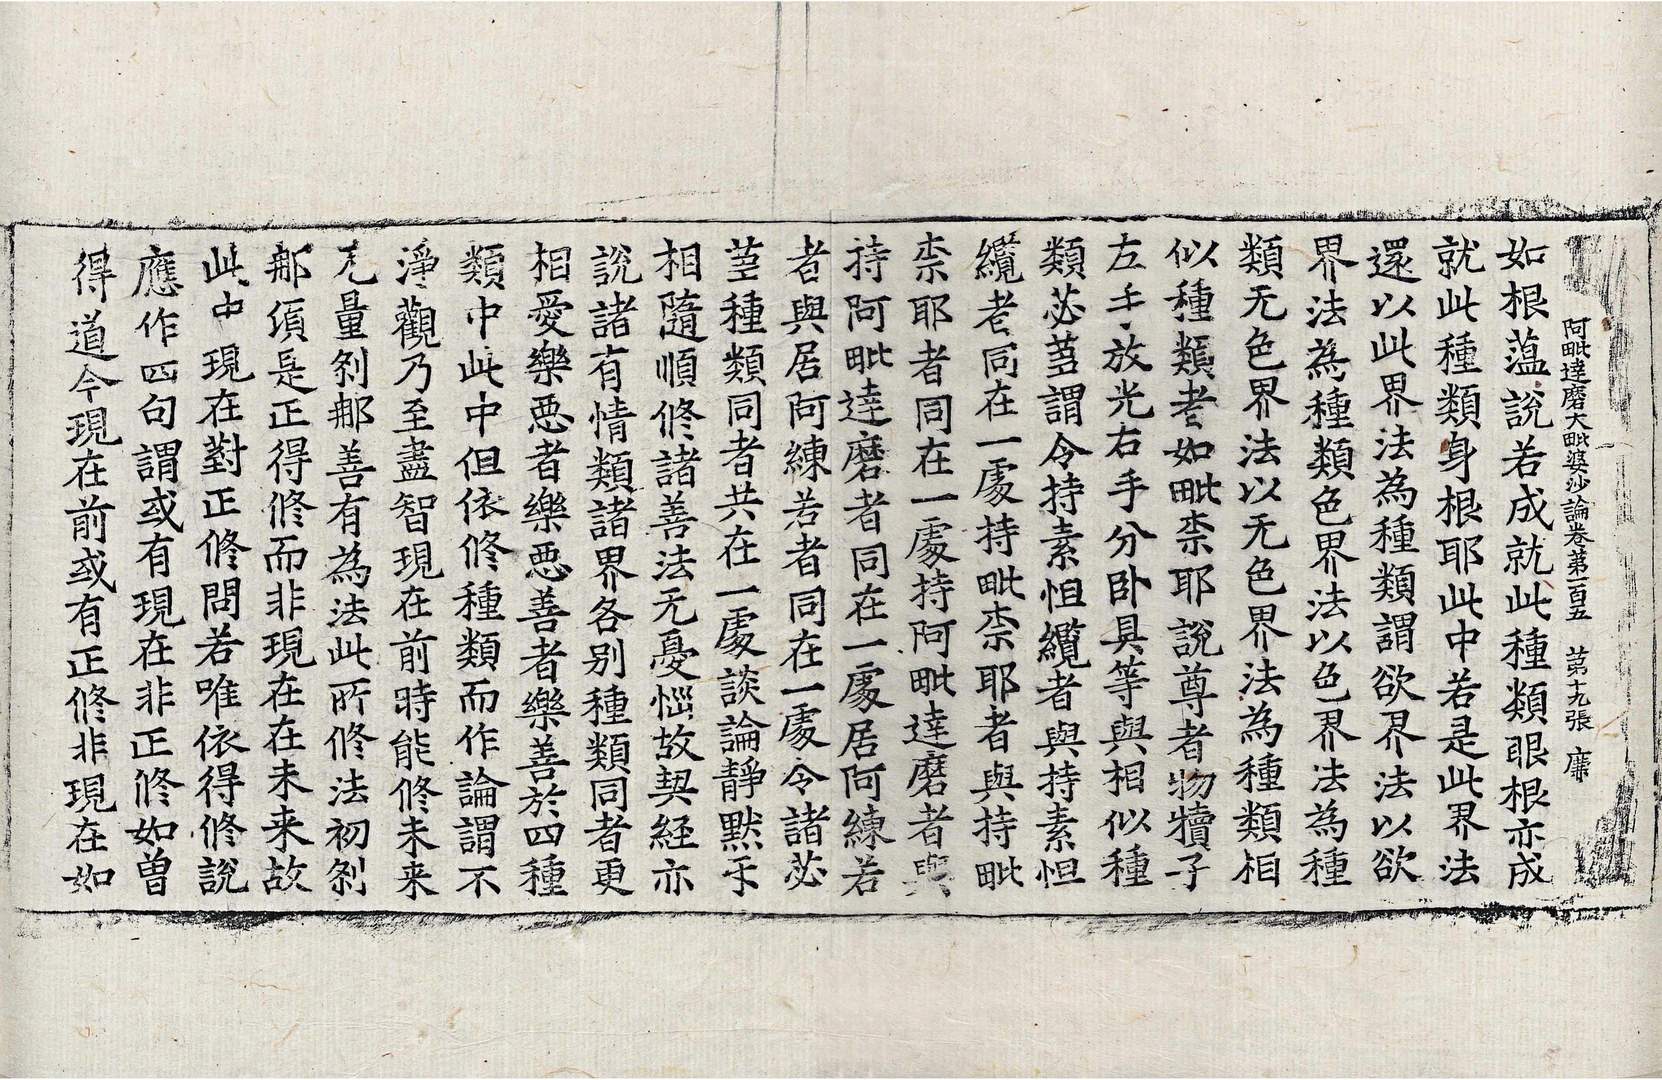 阿毗達磨大毗婆沙論卷第一百五　第十九張　廉
如根蕰說若成就此種類眼根亦成
就此種類身根耶此中若是此界法
還以此界法為種類謂欲界法以欲
界法為種類色界法以色界法為種
類无色界法以无色界法為種類相
似種類者如毗柰耶說尊者物犢子
左手放光右手分卧具等與相似種
類苾蒭謂令持素怛纜者與持素怛
纜者同在一處持毗柰耶者與持毗
柰耶者同在一處持阿毗達磨者與
持阿毗達磨者同在一處居阿練若
者與居阿練若者同在一處令諸苾
蒭種類同者共在一處談論靜默乎
相隨順修諸善法无憂惱故契経亦
說諸有情類諸界各别種類同者更
相愛樂惡者樂惡善者樂善於四種
類中此中但依修種類而作論謂不
淨觀乃至盡智現在前時能修未来
无量剎那善有為法此所修法初剎
那須是正得修而非現在在未来故
此中現在對正修問若唯依得修說
應作四句謂或有現在非正修如曽
得道今現在前或有正修非現在如